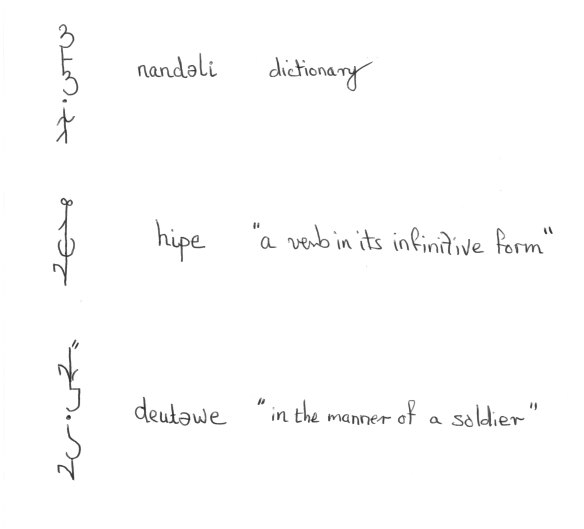 nandəli dictionary
hipe "a verb in its infinitive form"
deutəwe "in the manner of a soldier"